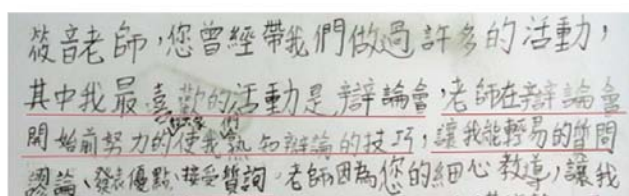 筱音老師，您曾經帶我們做過許多的活動，
其中我最喜歡的活動是辯論會，老師在辯論會
開始前努力的使我們熟知辯論的技巧，讓我能輕易的質問
辯論、發表優點、接受質詢。老師因為您的細心教導，讓我